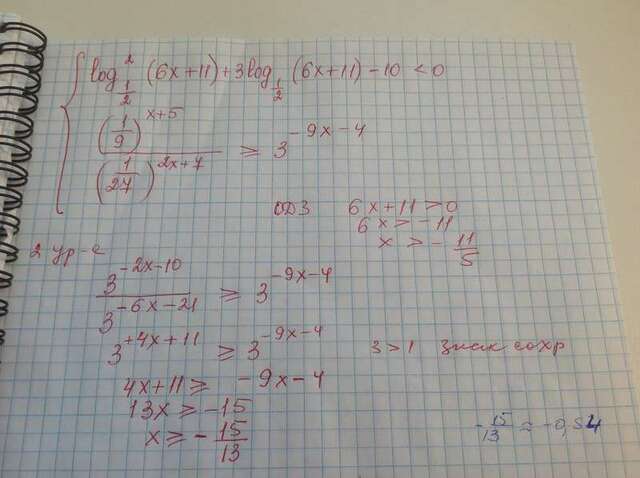 log²_{1/2} (6x+11) + 3log_{1/2} (6x+11) - 10 < 0
(1/9)^{x+5} / (1/27)^{2x+7} ≥ 3^{-9x-4}
ОДЗ 6x+11>0
6x > -11
x > - 11/5
2 ур-е
3^{-2x-10} / 3^{-6x-21} ≥ 3^{-9x-4}
3^{+4x+11} ≥ 3^{-9x-4} 3>1 знак сохр
4x+11 ≥ -9x-4
13x ≥ -15
x ≥ - 15/13
- 15/13 ≈ -0,84